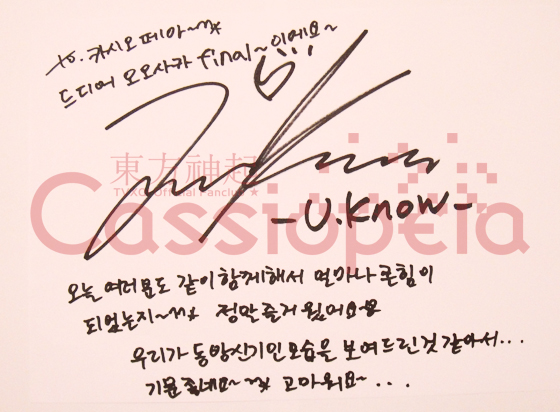 to. 카시오페아~^^*
드디어 오오사카 final~이에요~!!!
東方神起
TVXQ! Official Fanclub ★
Cassiopeia
-U.Know-
오늘 여러분도 같이 함께해서 얼마나 큰힘이
되었는지~^^* 정말 즐거웠어요~
우리가 동방신기인 모습을 보여드린것 같아서...
기분 좋네요~^^* 고마워요~...